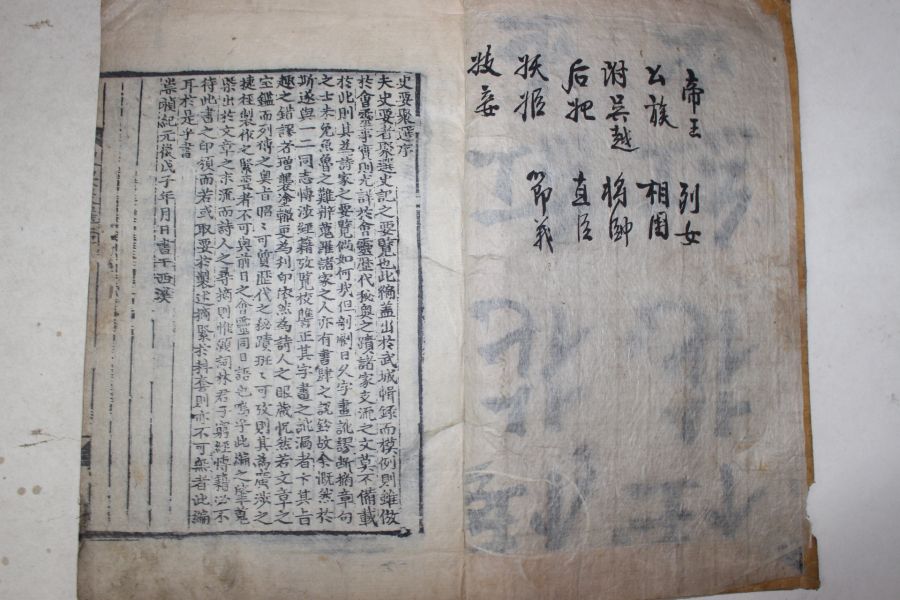 帝王 列女
公族 相國
附吳越 將帥
后妃 直臣
妖姬 節義
妓妾
史要聚選序
夫史要者聚選史記之要覽也此編盖出於武城輯錄而模例則雖倣
於會靈事實則尤詳於會靈歷代秘奧之蹟諸家支流之文莫不備載
於此則其並詩家之要覽倘如何我但剞劂日久字畫訛謬斷搦章句
之士未免魚魯之難辨蒐羅諸家之人亦有書肆之說鈴故余慨然於
斯遂與一二同志博涉經籍攷覽校讐正其字畫之訛漏者卞其旨
趣之錯謬者增製塗轍更為列印依然為詩人之眼藏怳然若文章之
宝鑑而列傳之奧旨昭〻可質歷代之秘蹟班〻可攷則其為實涉之
捷徑製作之緊要者不可與前日之會靈同日語也嗚乎此編之肇蒐
柴出於文章之末流而詩人之尋摘則惟願詞林君子窮經博籍必不
待此書之印頒而若或取要於製述摘緊於科套則亦不可無者此編
耳於是乎書
崇禎紀元後戊子年月日書于西溪